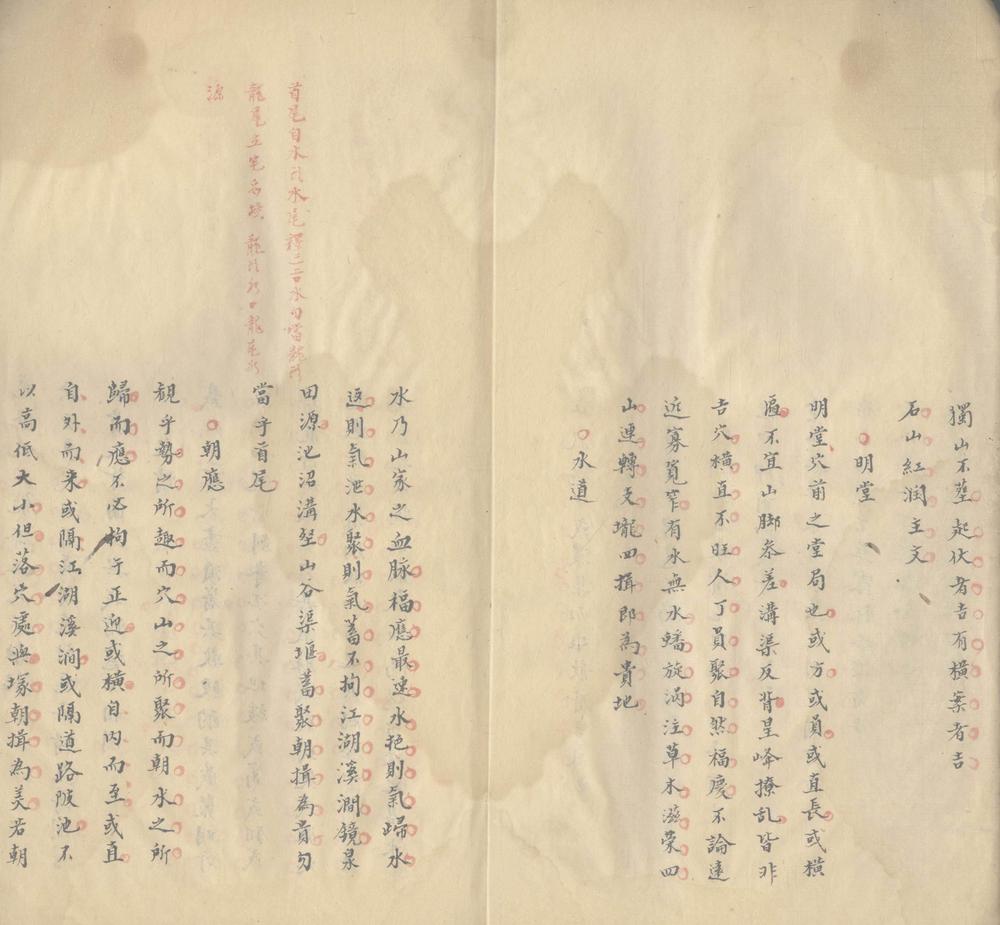 獨山不塟起伏者吉有橫案者吉
石山紅润主文
明堂
明堂穴前之堂局也或方或員或直長或橫
匾不宜山脚叅差溝渠反背星峰撩乱皆非
吉穴橫直不旺人丁員聚自然福慶不論遠
近寡寛窄有水無水蟠旋涡注草木滋荣四
山連轉支壠四揖即為貴地
水道
水乃山家之血脉福應最速水抱則氣歸水
返則氣泄水聚則氣蓄不拘江湖溪澗鏡泉
田源池沼溝壑山谷渠堰蓄聚朝揖為貴勿
當乎首尾
首尾自水
龍尾立宅
源
朝應
観乎勢之所趣而穴山之所聚而朝水之所
歸而應不必拘于正迎或橫自内而至或直
自外而来或隔江湖溪澗或隔道路陂池不
以高低大小但落穴處與塚朝揖為美若朝